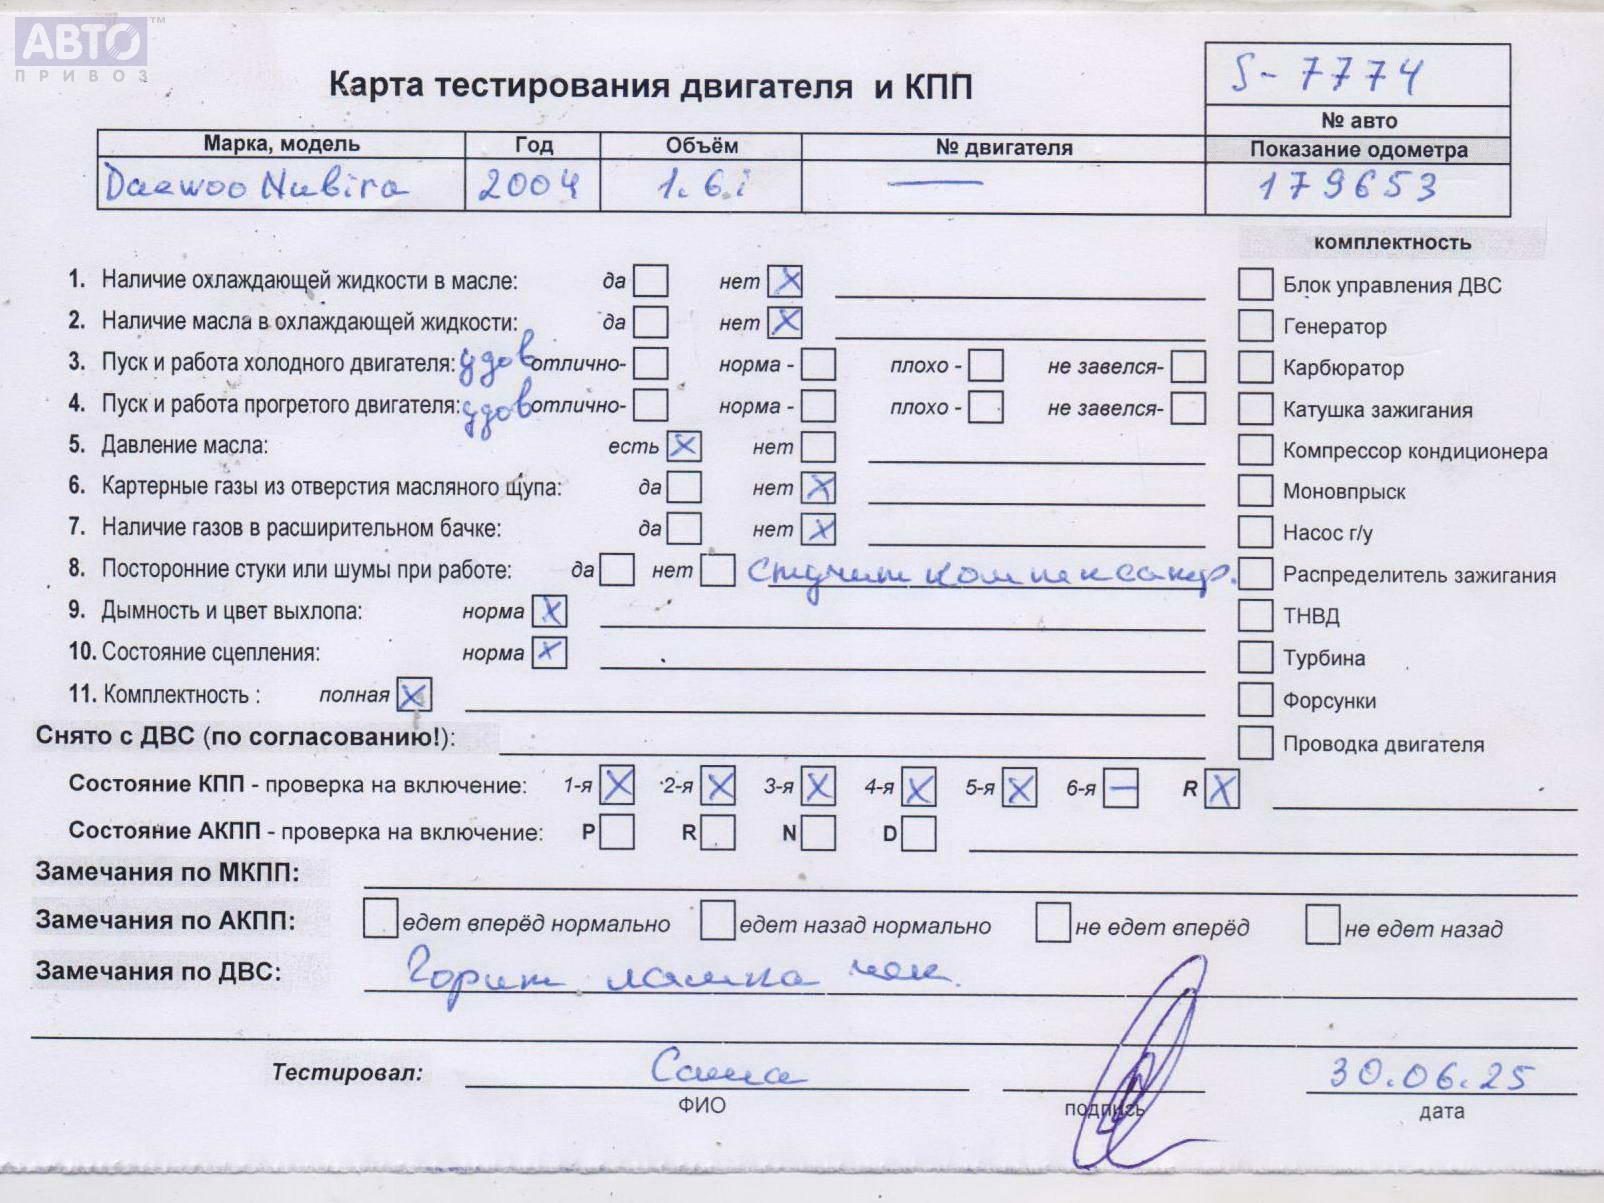 АВТО™
ПРИВОЗ
Карта тестирования двигателя и КПП
S-7774
№ авто
Марка, модель Год Объём № двигателя Показание одометра
Daewoo Nubira 2004 1.6.i — 179653
комплектность
1. Наличие охлаждающей жидкости в масле: да нет X Блок управления ДВС
2. Наличие масла в охлаждающей жидкости: да нет X Генератор
3. Пуск и работа холодного двигателя: удов отлично- норма - плохо - не завелся- Карбюратор
4. Пуск и работа прогретого двигателя: удов отлично- норма - плохо - не завелся- Катушка зажигания
5. Давление масла: есть X нет Компрессор кондиционера
6. Картерные газы из отверстия масляного щупа: да нет X Моновпрыск
7. Наличие газов в расширительном бачке: да нет X Насос г/у
8. Посторонние стуки или шумы при работе: да нет стучит Распределитель зажигания
9. Дымность и цвет выхлопа: норма X ТНВД
10. Состояние сцепления: норма X Турбина
11. Комплектность : полная X Форсунки
Снято с ДВС (по согласованию!): Проводка двигателя
Состояние КПП - проверка на включение: 1-я X 2-я X 3-я X 4-я X 5-я X 6-я — R X
Состояние АКПП - проверка на включение: P R N D
Замечания по МКПП:
Замечания по АКПП: едет вперёд нормально едет назад нормально не едет вперёд не едет назад
Замечания по ДВС: Горит лампа чек.
Тестировал: Саша 30.06.25
ФИО подпись дата